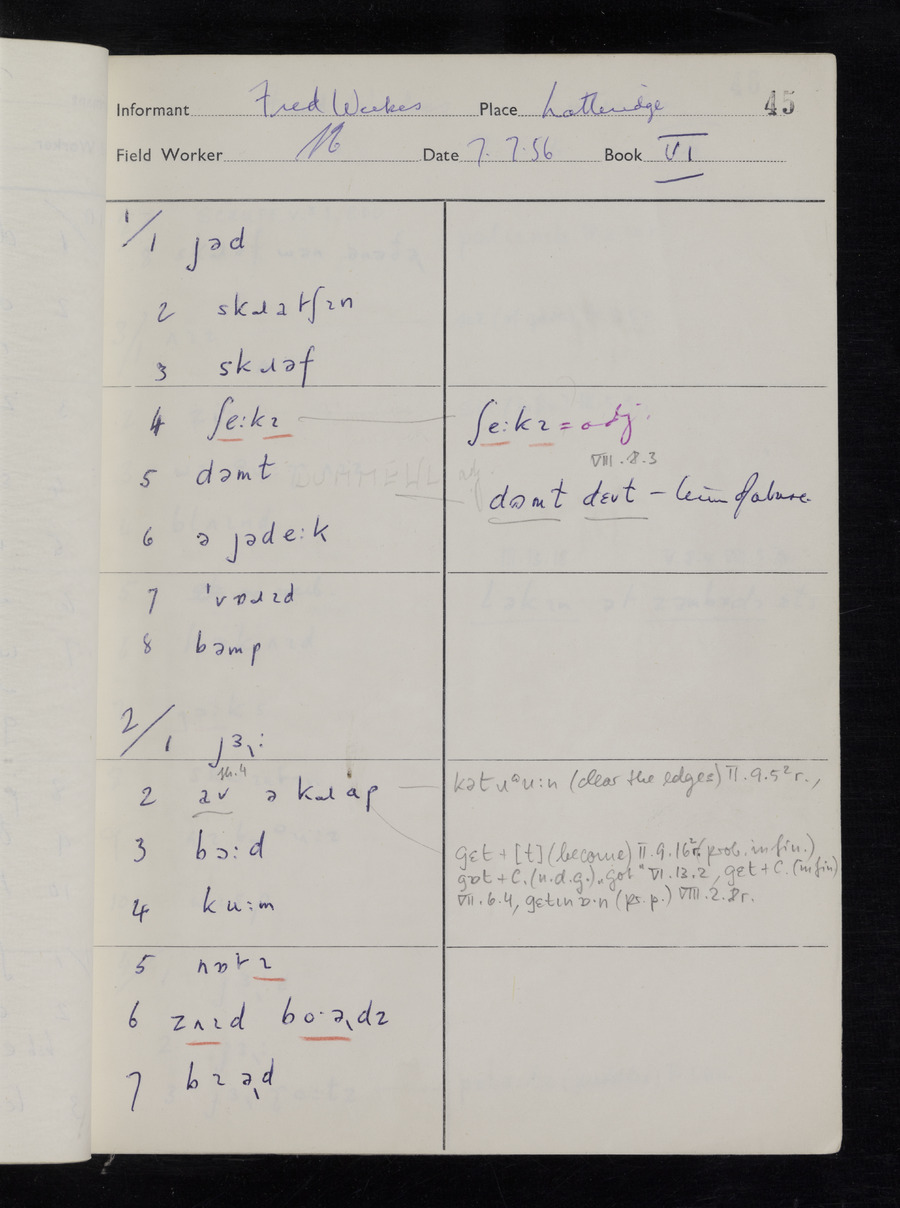 Informant Fred Weekes Place Latteridge 45
Field Worker Date 7. 7. 56 Book VI
1/1 jəd
2 skɹatʃɪn
3 skɹəf
4 ʃe:kɪ ʃe:kɪ = adj.
VIII.8.3
5 dəmt
dɒmt dɛvt – term of abuse
6 ə jəde:k
7 'vɒɹɪd
8 bəmp
2/1 jɜ:
2 av ə kɹap kət ɹᵊu:n (clear the edges) II.9.5² r.,
3 bə:d gɛt + [t] (become) II.9.16² r. (prob. infin.)
gɒt + C. (n.d.g.) "got" VI.13.2, gɛt + C. (infin)
4 ku:m VII.6.4, gɛtɪn ɒ·n (pr. p.) VIII.2.8 r.
5 nɒtɪ
6 zʌɪd bo·ədz
7 bɪəd